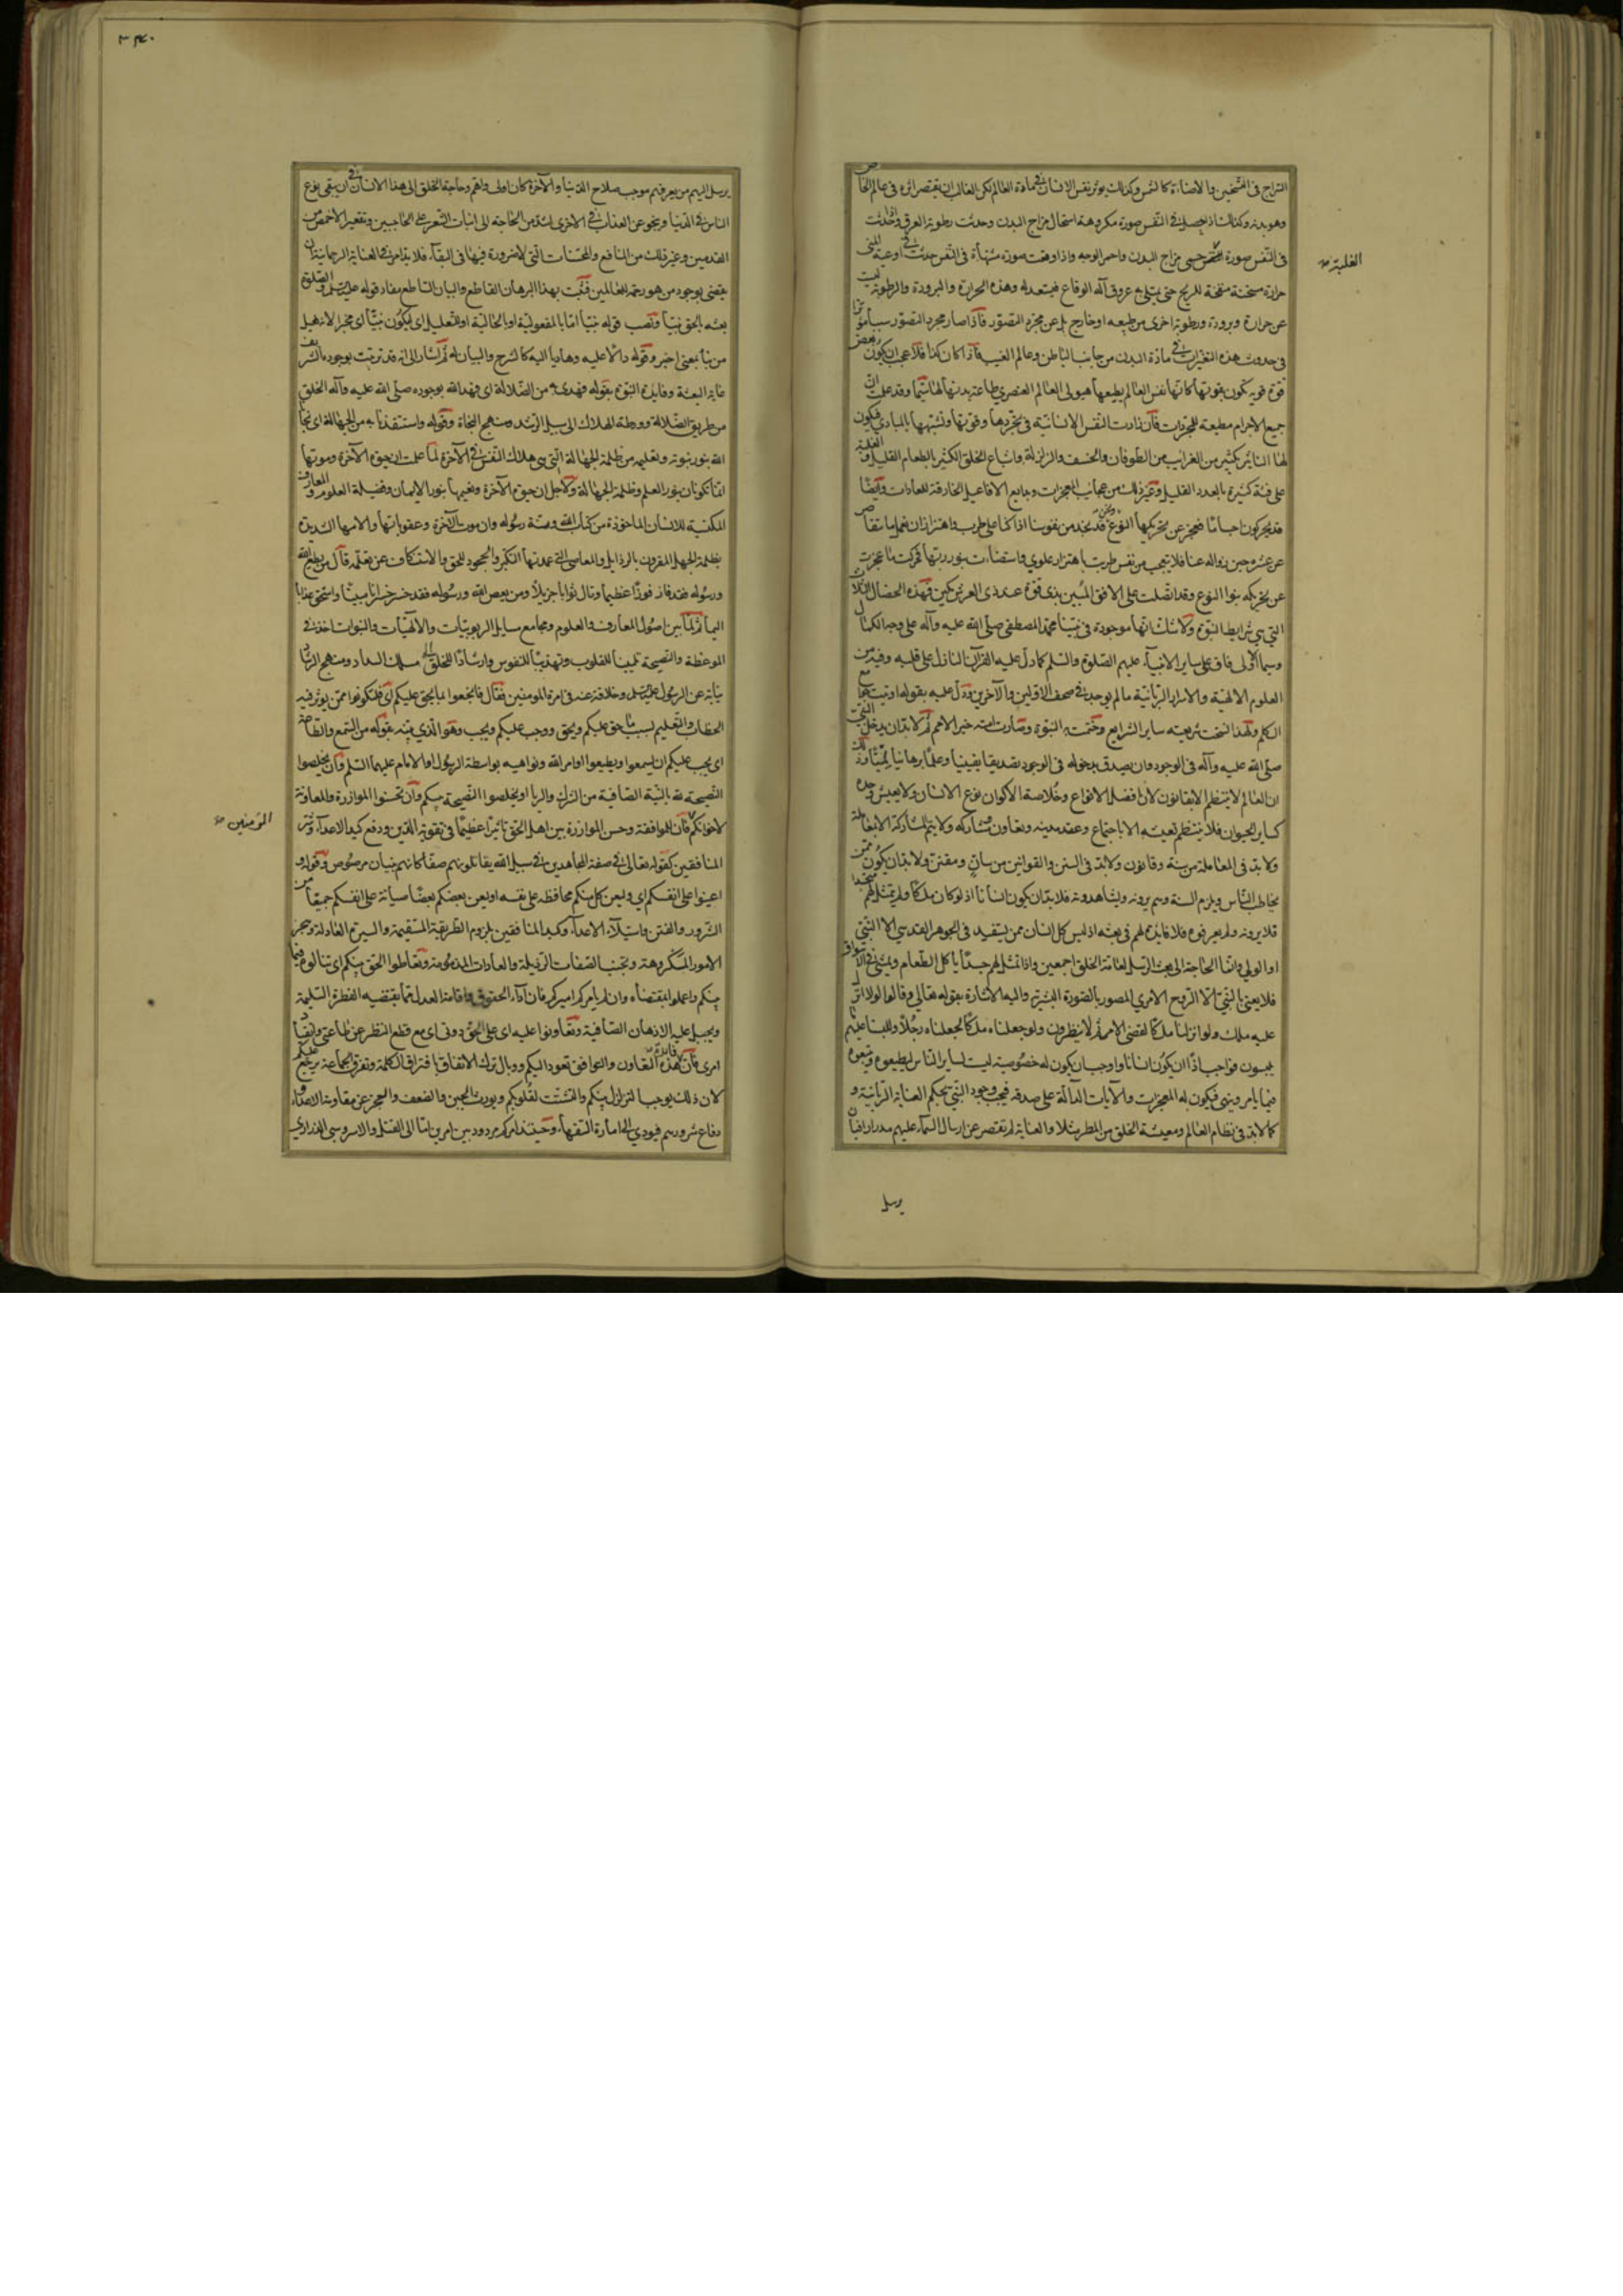 السراج في التسخين والاضاءة كالشمس وكذلك يوثر نفس الانسان في مادة العالم لكن الغالب ان يقتصر اثره في عالم الخاص
وهو بدنه وكذلك اذا حصل في النفس صورة مكروهة استحال مزاج البدن وحدثت رطوبة العرق واذا حدثت
في النفس صورة الغلبة حمي مزاج البدن واحمر الوجه واذا وقعت صورة مشتهاة في النفس حدثت في اوعية المني
الغلبة صح
حرارة مسخنة منفخة للريح حتى يمتلي به عروق آلة الوقاع فيستعد له وهذه الحرارة والبرودة والرطوبة ليست
عن حرارة وبرودة ورطوبة اخرى من طبيعة او خارج بل عن مجرد التصور فاذا صار مجرد التصور سببا موثرا
في حدوث هذه التغيرات في مادة البدن من جانب الباطن وعالم الغيب فاذا كان كذا فلا عجب ان يكون لبعض
قوة قوية يكون بقوتها كانها نفس العالم يطيعها هيولى العالم العنصري طاعة بدنها لها سيما وقد علمت ان
جميع الاجرام مطيعة للمجردات فان زادت النفس الانسانية في تجردها وقوتها وتشبهها بالمبادي فيكون
لها التاثير بكثير من الغرايب من الطوفان والخسف والزلزلة واشباع الخلق الكثير بالطعام القليل والغلبة
على فئة كثيرة بالعدد القليل وغير ذلك من عجائب المعجزات وبدايع الافاعيل الخارقة للعادات وايضا
قد يحركون اجساما فيعجز عن تحريكها النوع ونحن قد نجد من نفوسنا اذا كنا على طرب واهتزاز ان نعمل ما نتقاصر
عن عشره حين زواله عنا فلا يتعجب من نفس طربت باهتزاز علوي واستضاءت بنور ربها فحركت ما عجزت
عن تحريكه بنوا النوع وقد اتصلت على الافق المبين بذي قوة عند ذي العرش مكين فهذه الخصال الثلاث
التي هي شرايط النبوة ولا شك انها موجودة في نبينا محمد المصطفى صلى الله عليه وآله على وجه الكمال
وسيما الاولى فاق على ساير الانبياء عليهم الصلوة والسلم كما دل عليه القرآن النازل على قلبه وفيه من
العلوم الالهية والاسرار الربانية ما لم يوجد في صحف الاولين والآخرين ودل عليه بقوله اوتيت جوامع
الكلم ولهذا نسخت شريعته ساير الشرايع وختمت به النبوة وصارت امته خير الامم ثم لابد ان يدخل النبي
صلى الله عليه وآله في الوجود وان يصدق بدخوله في الوجود تصديقا يقينيا وعلما برهانيا لميا وذلك
ان العالم لا ينتظم الا بقانون لان افضل الانواع وخلاصة الاكوان نوع الانسان ولا يعيش وحده
كساير الحيوان فلا ينتظم تعيشه الا باجتماع وعقد مدينة وتعاون ومشاركة ولا يتم المشاركة الا بمعاملة
ولا بد في المعاملة من سنة وقانون ولا بد في السنن والقوانين من سان ومقنن ولابد ان يكون ممن
يخاطب الناس ويلزم السنة وهم يرونه ويشاهدونه فلابد ان يكون انسانا اذ لو كان ملكا ولم يتمثل لهم متجسدا
فلا يرونه ولم يعرفوه فلا فايدة لهم في بعثه اذ ليس كل انسان ممن يستفيد في الجوهر القدسي الا النبي
او الولي وانما الحاجة الى بعث الرسل لعامة الخلق اجمعين واذا تمثل لهم جسدا ياكل الطعام ويمشي في الاسواق
فلا يعني بالنبي الا الروح الامري المصور بالصورة البشرية واليه الاشارة بقوله تعالى وقالوا لولا انزل
عليه ملك ولو انزلنا ملكا لقضي الامر ثم لا ينظرون ولو جعلناه ملكا لجعلناه رجلا وللبسنا عليهم ما
يلبسون فواجب اذا ان يكون انسانا وواجب ان يكون له خصوصية ليست لساير الناس ليطيعوه ويتبعوه
فيما يامر وينهى فيكون له المعجزات والآيات الدالة على صدقه فيجب وجود النبي بحكم العناية الربانية و
كما لابد في نظام العالم ومعيشة الخلق من المطر مثلا والعناية لم تقتصر عن ارسال السماء عليهم مدرارا فبان
يرسل
٣٤٠
يرسل اليهم من يعرفهم موجب صلاح الدنيا والآخرة كان اولى واهم وحاجة الخلق الى هذا الانسان في ان يبقى نوع
الناس في الدنيا وينجو عن العذاب في الاخرى اشد من الحاجة الى انبات الشعر على الحاجبين وتقعير الاخمص من
القدمين وغير ذلك من المنافع والمحسنات التي لا ضرورة فيها في البقاء فلابد من في العناية الرحمانية ان
يقضي بوجود من هو رحمة للعالمين فثبت بهذا البرهان القاطع والبيان الساطع مفاد قوله عليه السلم والصلوة
بعثه بالحق نبيا ونصب قوله نبيا اما بالمفعولية او بالحالية او للتعليل اي ليكون نبيا اي مخبرا لانه فعيل
من نبأ بمعنى اخبر وقوله دالا عليه وهاديا اليه كالشرح والبيان له ثم اشار الى انه قد ترتبت بوجوده الشريف
غاية البعثة وفايدة النبوة بقوله فهدى به من الضلالة اي فهدى الله بوجوده صلى الله عليه وآله الخلق
من طريق الضلالة وورطة الهلاك الى سبيل الرشد ومنهج النجاة وقوله واستنقذنا به من الجهالة اي نجانا
الله بنور نبوته وتعليمه من ظلمة الجهالة التي هي هلاك النفس في الآخرة لما علمت ان حيوة الآخرة وموتها
انما تكونان بنور العلم وظلمة الجهالة ولاجل ان حيوة الآخرة ونعيمها بنور الايمان وفضيلة العلوم والمعارف
المكتسبة للانسان الماخوذة من كتاب الله وسنة رسوله وان موت الآخرة وعقوباتها وآلامها الشديدة
بظلمة الجهل المقرون بالرذايل والمعاصي التي عمدتها التكبر والجحود للحق والاستنكاف عن تعلمه قال من يطع الله
ورسوله فقد فاز فوزا عظيما ونال ثوابا جزيلا ومن يعص الله ورسوله فقد خسر خسرانا مبينا واستحق عذابا
اليما ثم لما بين اصول المعارف والعلوم ومجامع مسايل الربوبيات والالهيات والنبوات اخذ في
الموعظة والنصيحة تليينا للقلوب وتهذيبا للنفوس وارشادا للخلق الى مسلك السداد ومنهج الرشاد
نيابة عن الرسول عليه السلم وخلافة عنه في امرة المومنين فقال فانجعوا بما يحق عليكم اي فلتكونوا ممن يوثر فيه
الخطاب والتعليم بسبب ما حق عليكم ويحق ووجب عليكم ويجب وهو الذي بينه بقوله من السمع والطاعة
اي يجب عليكم ان يسمعوا ويطيعوا اوامر الله ونواهيه بواسطة الرسول او الامام عليهما السلم وان يخلصوا
النصيحة لله بالنية الصافية من الشرك والريا او يخلصوا النصيحة بينكم وان تحسنوا الموازرة والمعاونة
لاخوانكم المؤمنين فان للموافقة وحسن الموازرة بين اهل الحق تاثيرا عظيما في تقوية الدين ودفع كيد الاعداء وشر
المؤمنين صح
المنافقين كقوله تعالى في صفة المجاهدين في سبيل الله يقاتلونهم صفا كانهم بنيان مرصوص وقوله و
اعينوا على انفسكم اي وليعن كل منكم محافظة على نفسه او يعين بعضكم بعضا صيانة على انفسكم جميعا من
الشرور والفتن واستيلاء الاعداء وكيد المنافقين بلزوم الطريقة المستقيمة والسيرة العادلة وهجر
الامور المكروهة وتجنب الصفات الرذيلة والعادات المذمومة وتعاطوا الحق بينكم اي تناولوه فيما
بينكم واعملوا بمقتضاه وان لم يامركم اميركم فان اداء الحقوق واقامة العدل مما يقتضيه الفطرة السليمة
ويجبل عليه الاذهان الصافية وتعاونوا عليه اي على الحق دوني اي مع قطع النظر عن طاعتي وانفاذ
امري فان فايدة هذه التعاون والتوافق تعود اليكم ووبال ترك الاتفاق بافتراق الكلمة وتفرق الجماعة يرجع عليكم
لان ذلك يوجب التزلزل بينكم والتشتت لقلوبكم ويورث الجبن والضعف والعجز عن مقاومة الاعداء و
دفاع شرورهم فيودي الى امارة السفهاء وحينئذ امركم مردود بين امرين اما الى القتل والاسر وسبي الذراري